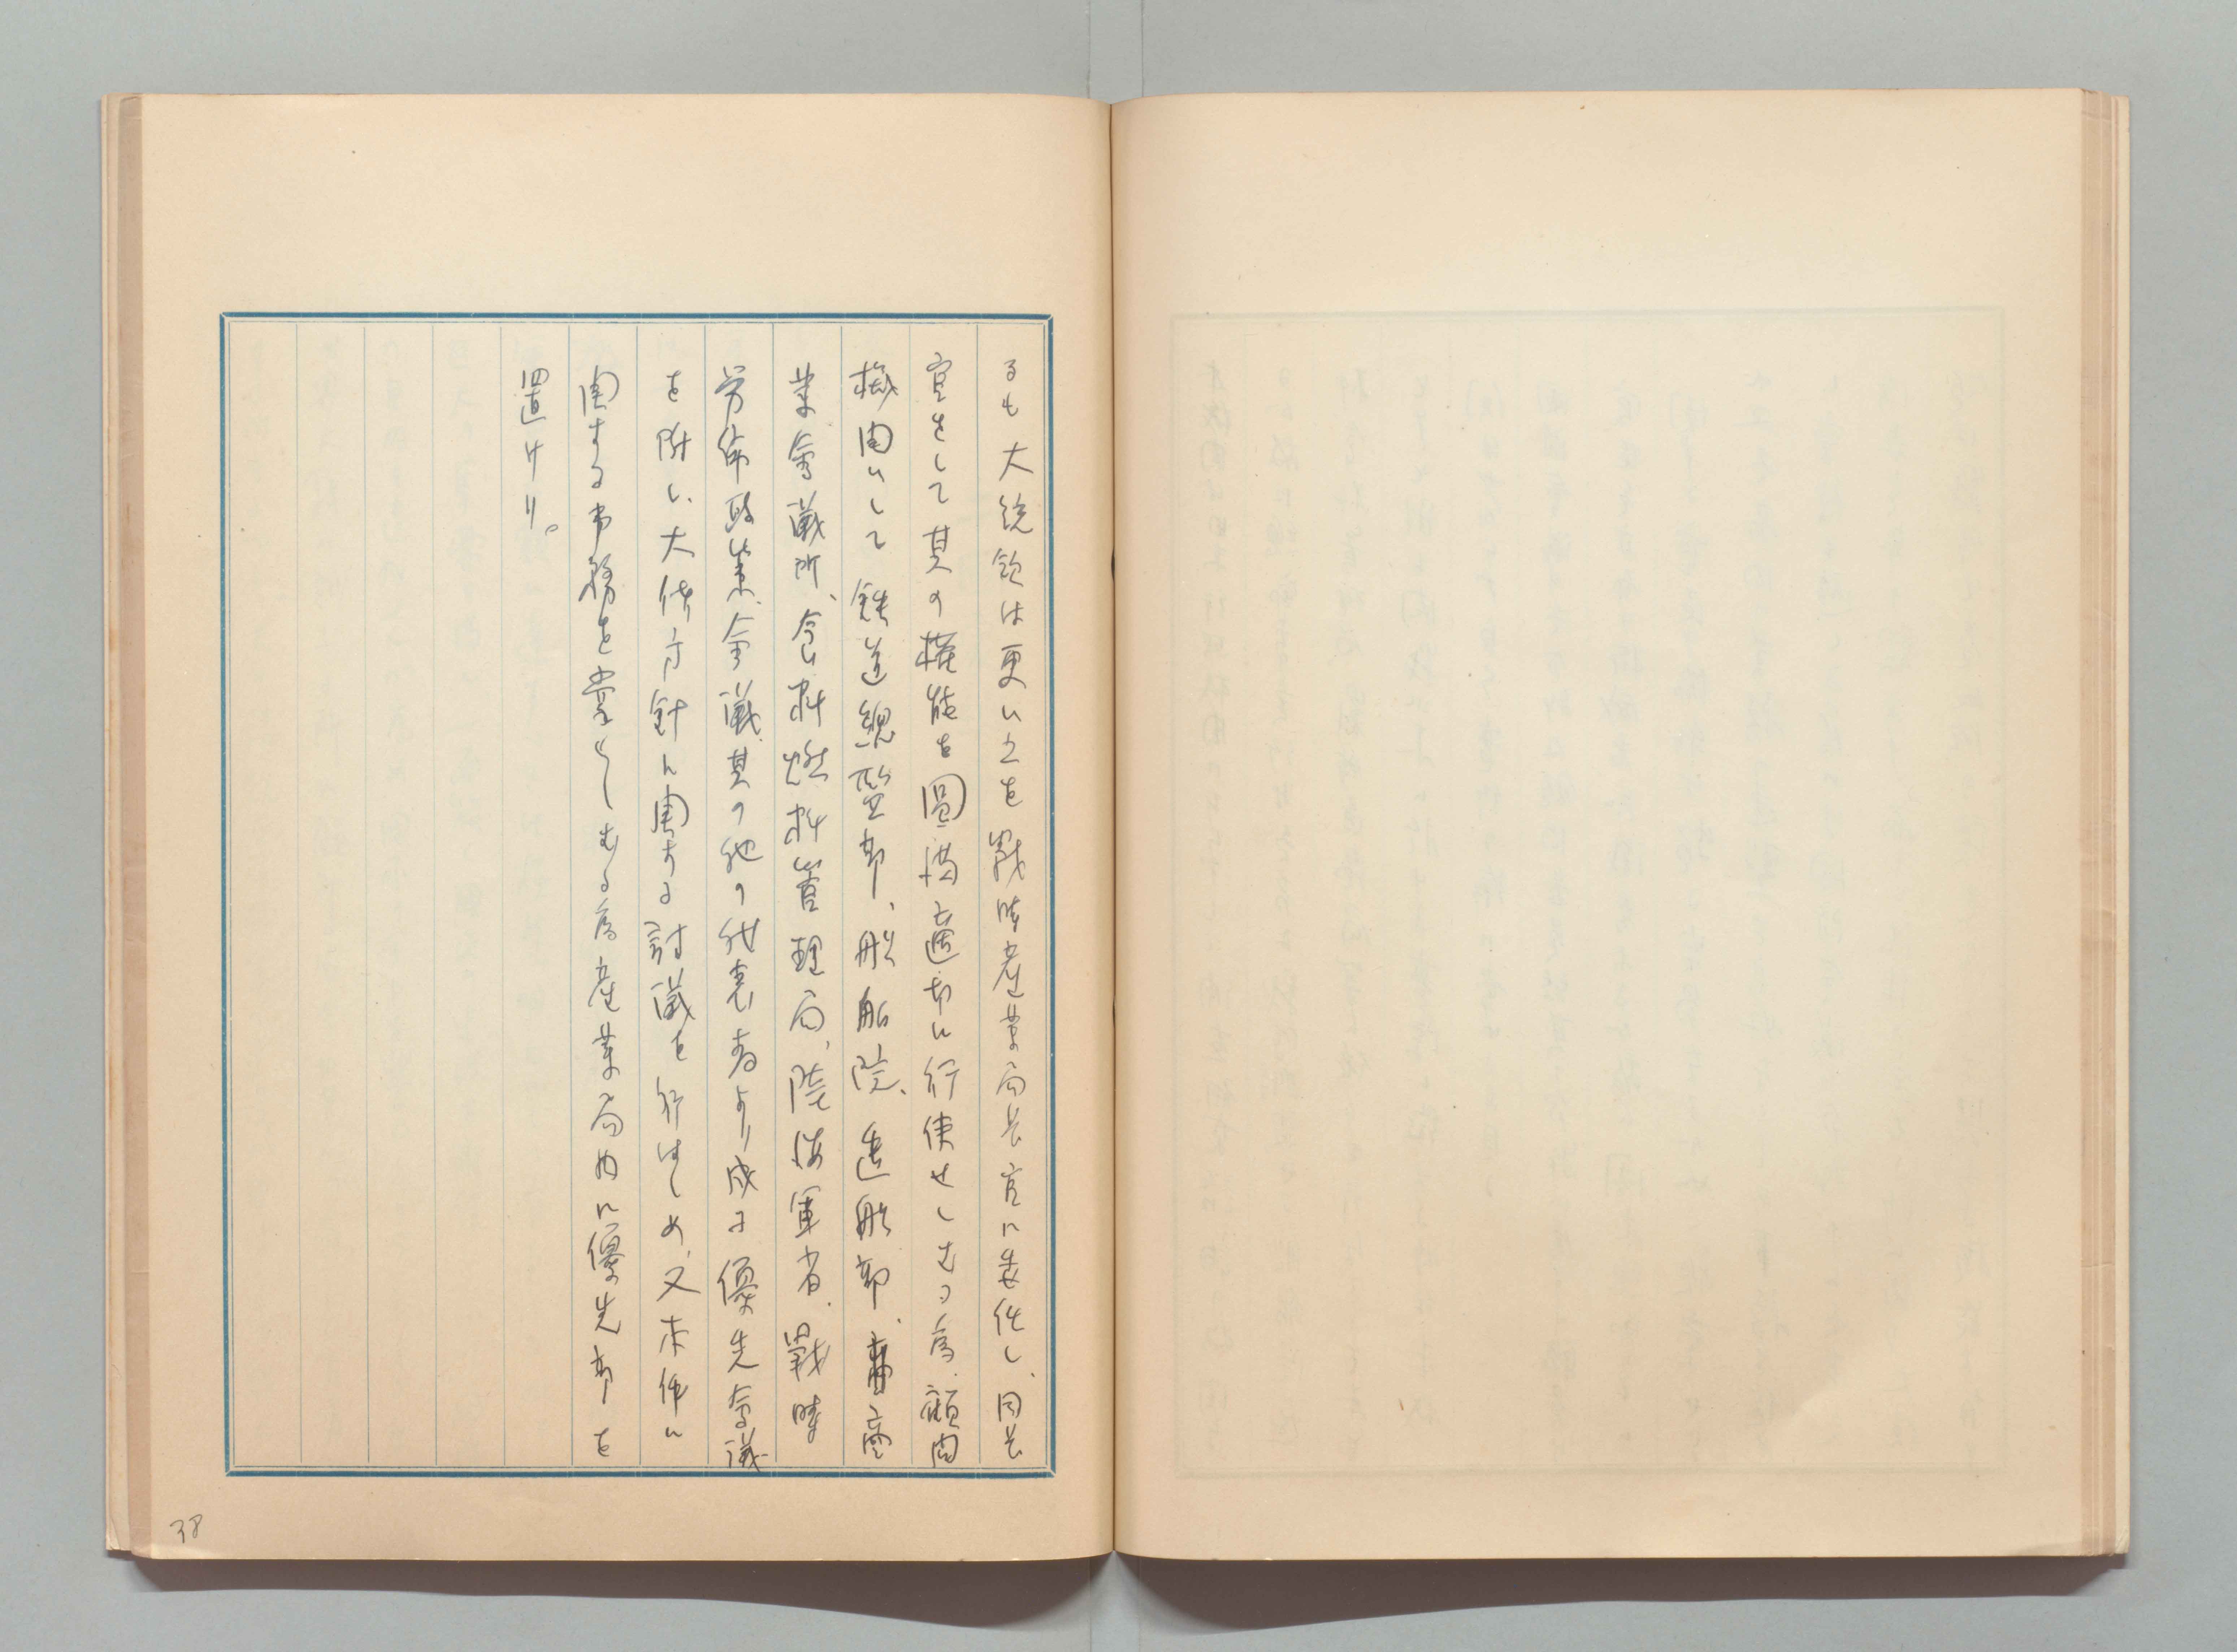 るも大統領は更に之を戰時産業局長官に委任し、同長
官をして其の權能を圓滿適切に行使せしむる爲、顧問
機関として鉄道總監部、船舶院、造船部、商
業會議所、食料燃料管理局、陸海軍省、戰時
労働政策會議其の他の代表者より成る優先會議
を附し、大体方針に関する討議を行はしめ、又本件に
関する事務を掌らしむる為産業局内に優先部を
置けり。
38